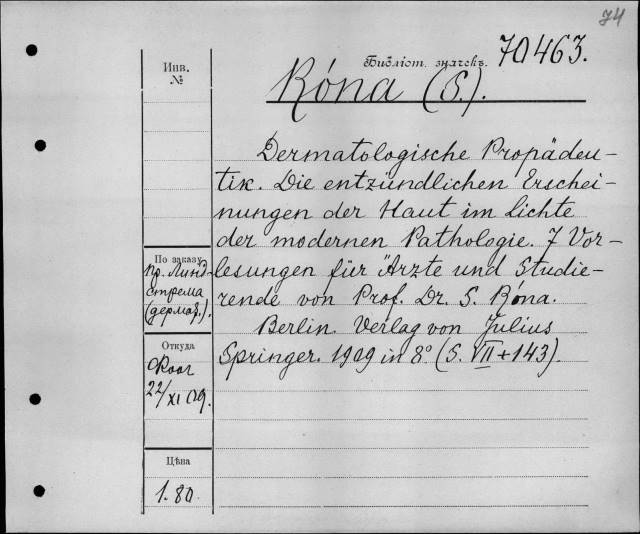 74
Инв.
№
Библіот. значекъ.
70463.
Róna (S.).
Dermatologische Propädeu-
tik. Die entzündlichen Erschei-
nungen der Haut im Lichte
der modernen Pathologie. 7 Vor-
lesungen für Ärzte und Studie-
rende von Prof. Dr. S. Róna.
Berlin. Verlag von Julius
Springer. 1909 in 8° (S. VII + 143).
По заказу
пр. Линд-
стрема
(дермат.).
Откуда
22/XI 09.
Цѣна
1.80.